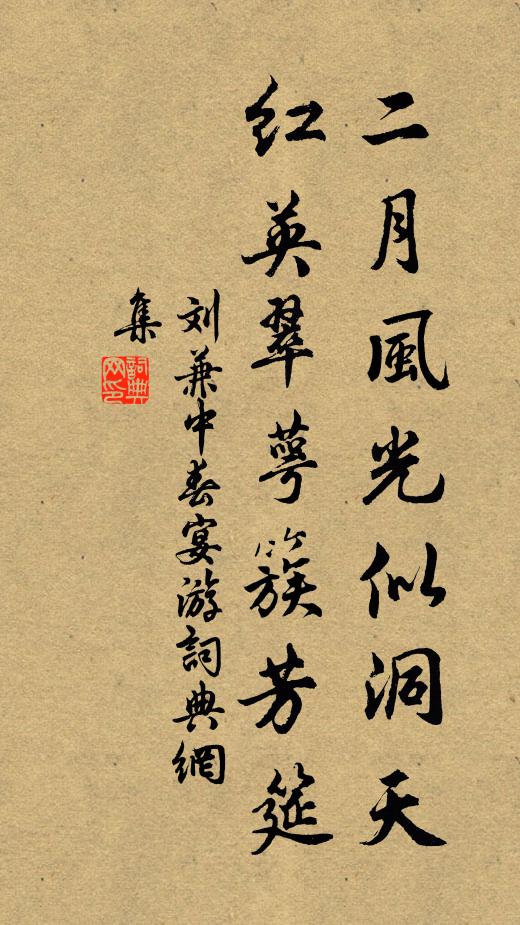 二月風光似洞天
紅英翠萼簇芳筵
刘兼中春宴游詞典網
集
詞典網印